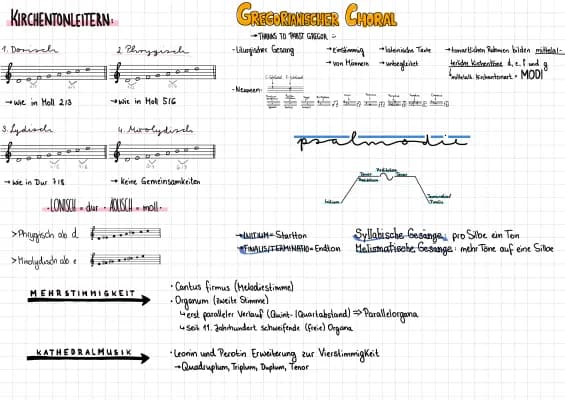 KIRCHENTONLEITERN:
1. Dorisch
2. Phrygisch
→ wie in Moll 2/3
→ wie in Moll 5/6
3. Lydisch
4. Mixolydisch
→ wie in Dur 7/8
→ Keine Gemeinsamkeiten
• IONISCH = dur • ÄOLISCH = moll •
> Phrygisch ab d
> Mixolydisch ab e
GREGORIANISCHER CHORAL
→ THANKS TO PABST GREGOR
- Liturgischer Gesang
→ einstimmig
→ von Männern
→ lateinische Texte
→ unbegleitet
→ tonartlichen Rahmen bilden mittelal-
terliche Kirchentöne d, e, f und g
mittelalt. Kirchentonart = MODI
- Neumen:
psalmodie
Initium
Tenor
Mediatio
Tenor
→ INITIUM = Startton
→ FINALIS/TERMINATIO = Endton
Syllabische Gesänge: pro Silbe ein Ton
Melismatische Gesänge: mehr Töne auf eine Silbe
MEHRSTIMMIGKEIT
• Cantus firmus (Melodiestimme)
• Organum (zweite Stimme)
↳ erst paralleler Verlauf (Quint-/Quartabstand) ⇒ Parallelorgana
↳ seit 11. Jahrhundert schweifende (freie) Organa
KATHEDRALMUSIK
• Leonin und Perotin Erweiterung zur Vierstimmigkeit
→ Quadruplum, Triplum, Duplum, Tenor